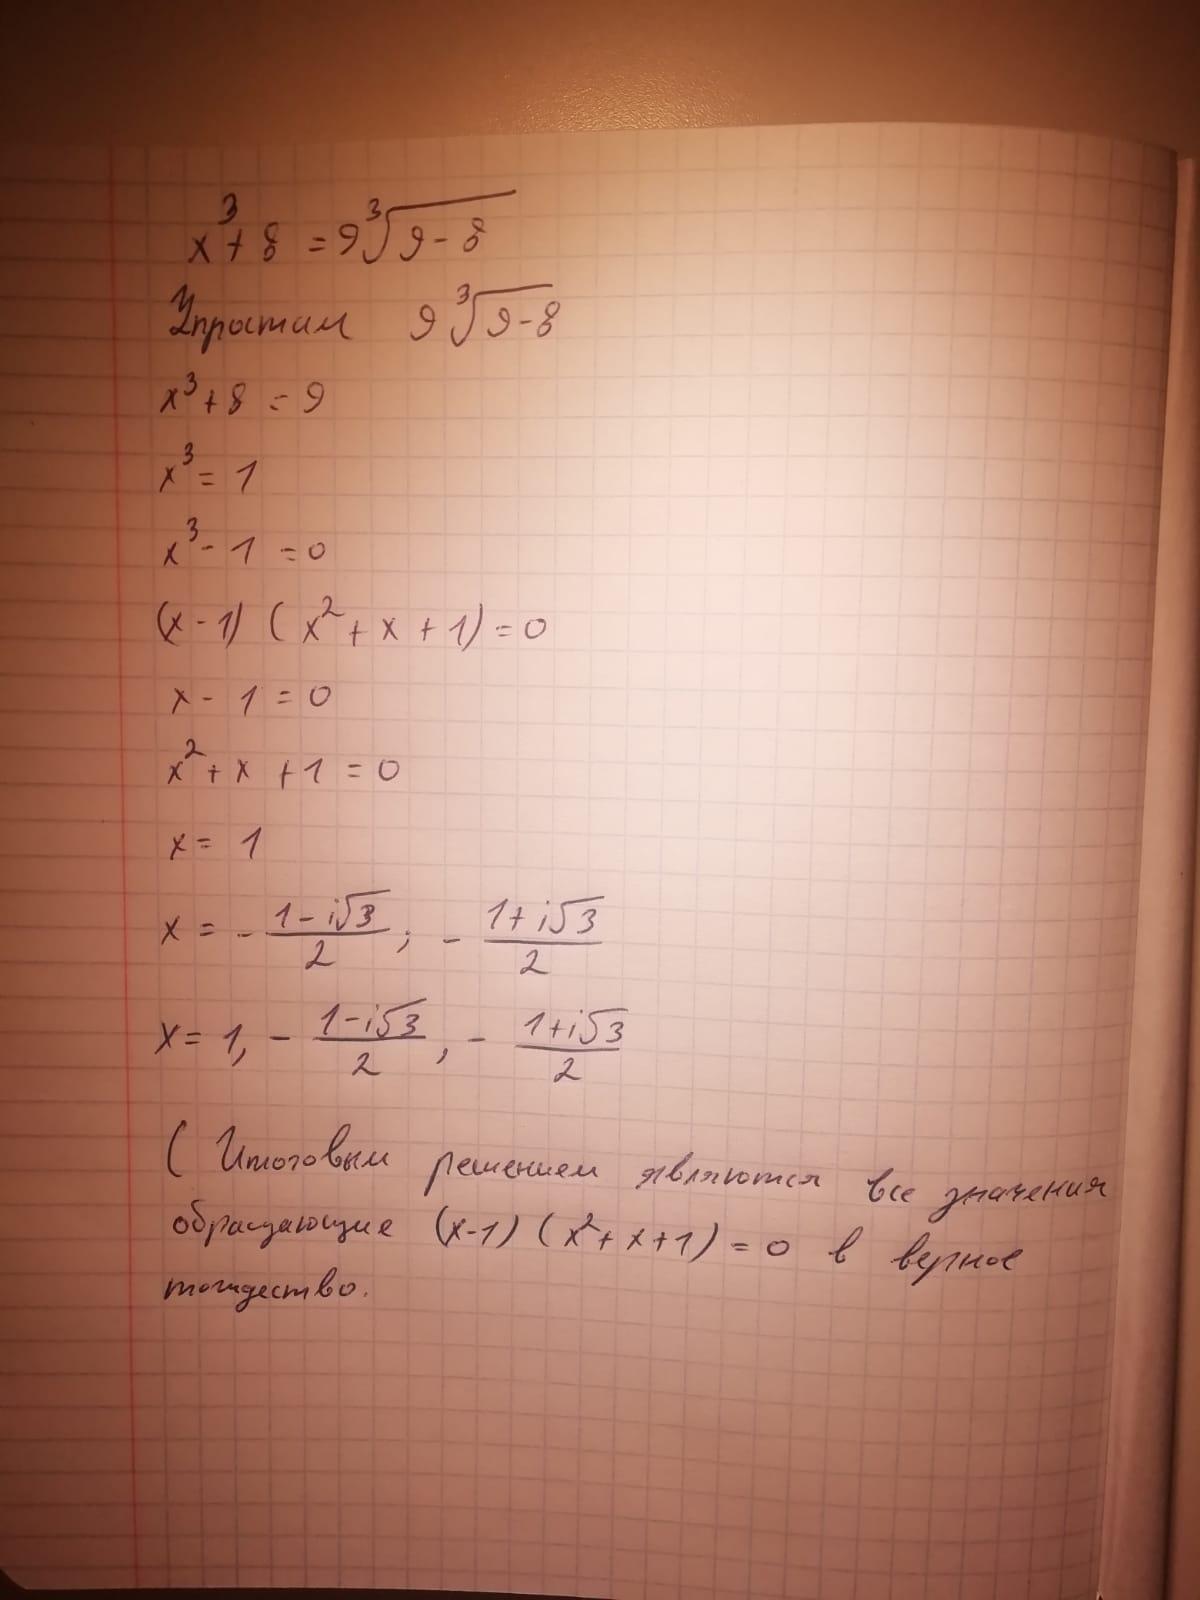 x³ + 8 = 9∛(9 - 8)
Упростим 9∛(9 - 8)
x³ + 8 = 9
x³ = 1
x³ - 1 = 0
(x - 1) (x² + x + 1) = 0
x - 1 = 0
x² + x + 1 = 0
x = 1
x = - (1 - i√3)/2 ; - (1 + i√3)/2
x = 1, - (1 - i√3)/2 , - (1 + i√3)/2
( Итоговым решением являются все значения
обращающие (x - 1) (x² + x + 1) = 0 в верное
тождество.